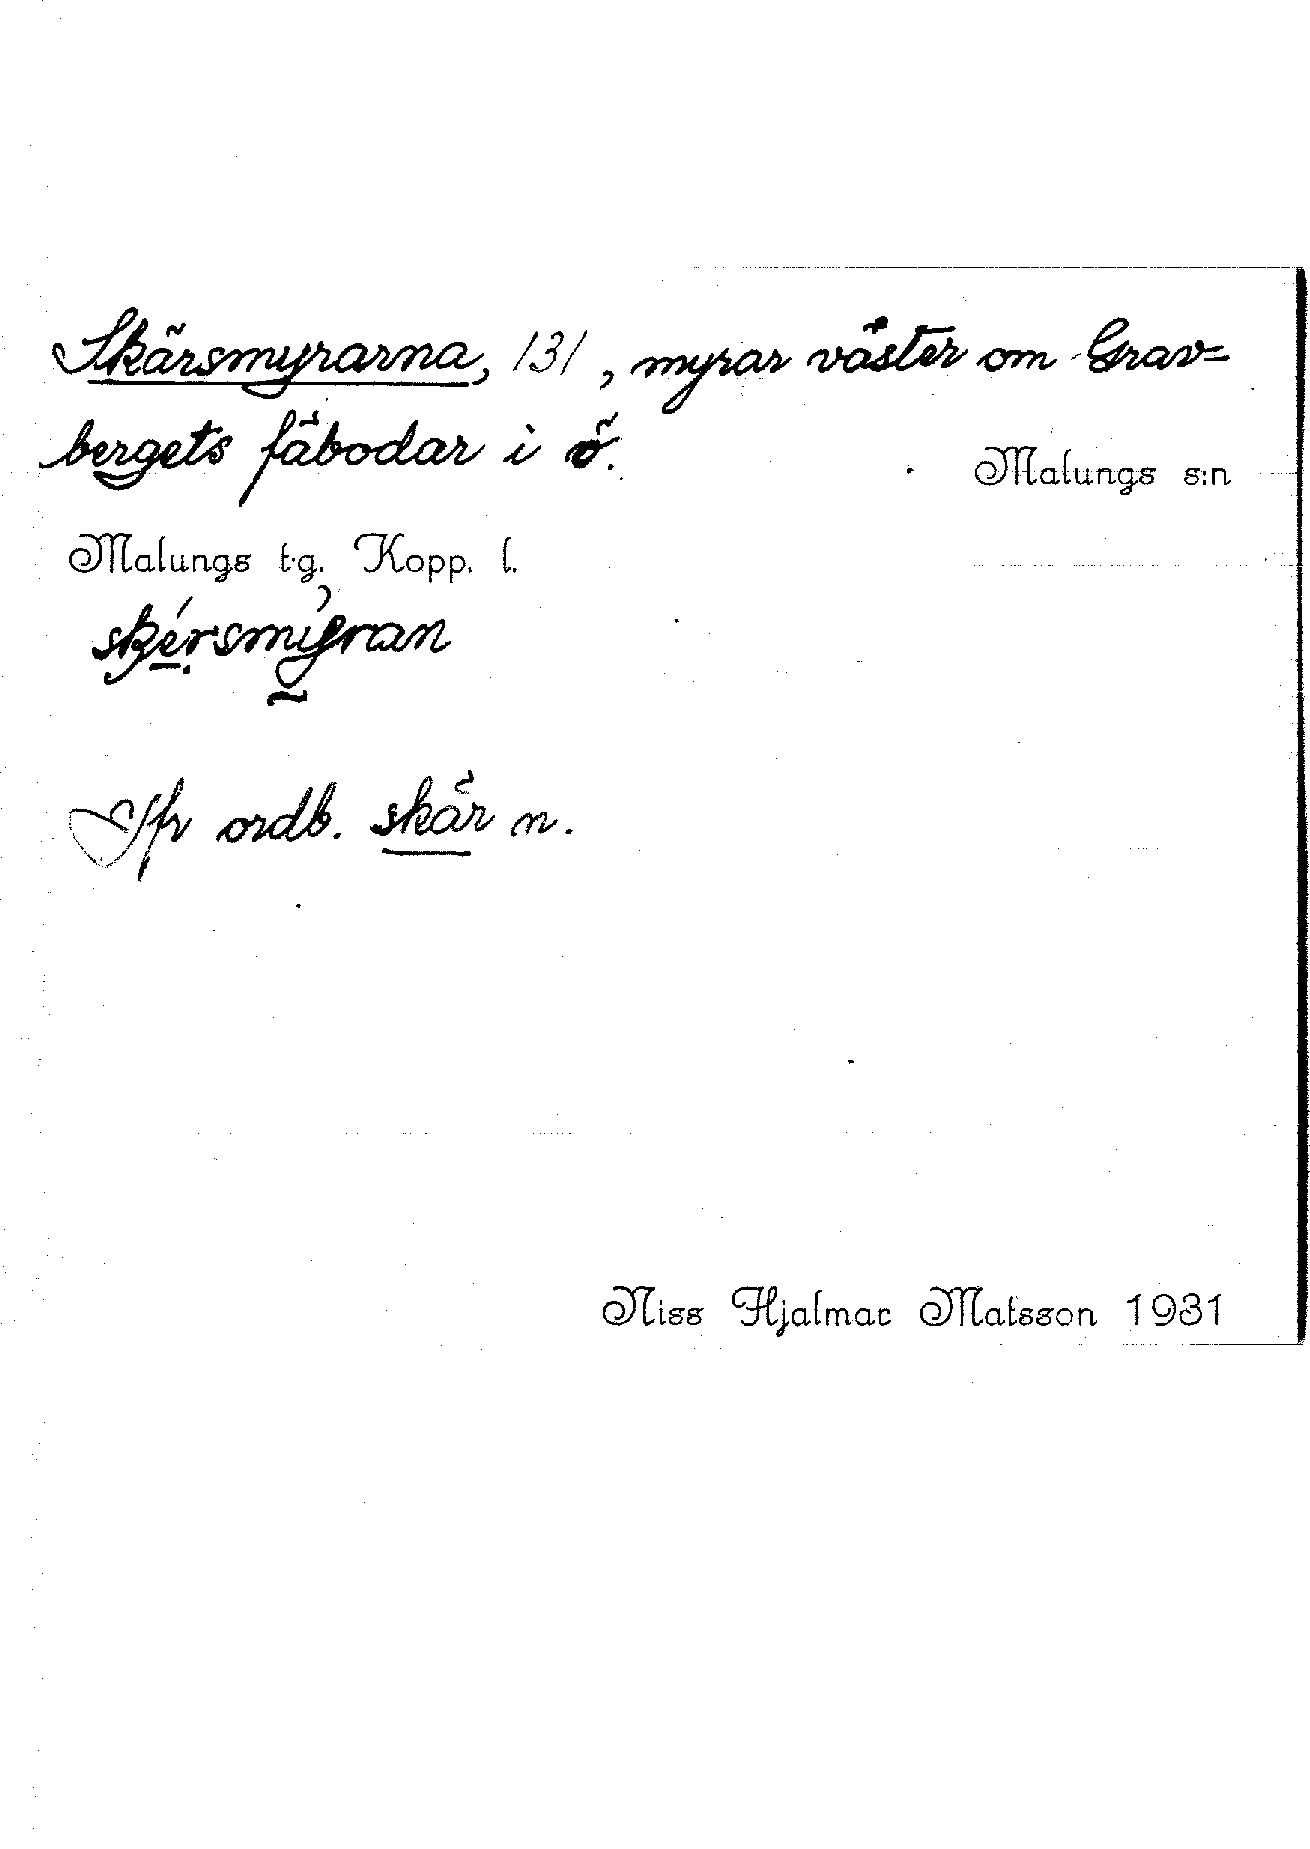 Skärsmyrarna, 131, myrar väster om Grav=
bergets fäbodar i ö.
Malungs s:n
Malungs t·g. Kopp. l.
skérsmýran
Jfr ordb. skär n.
Niss Hjalmar Matsson 1931